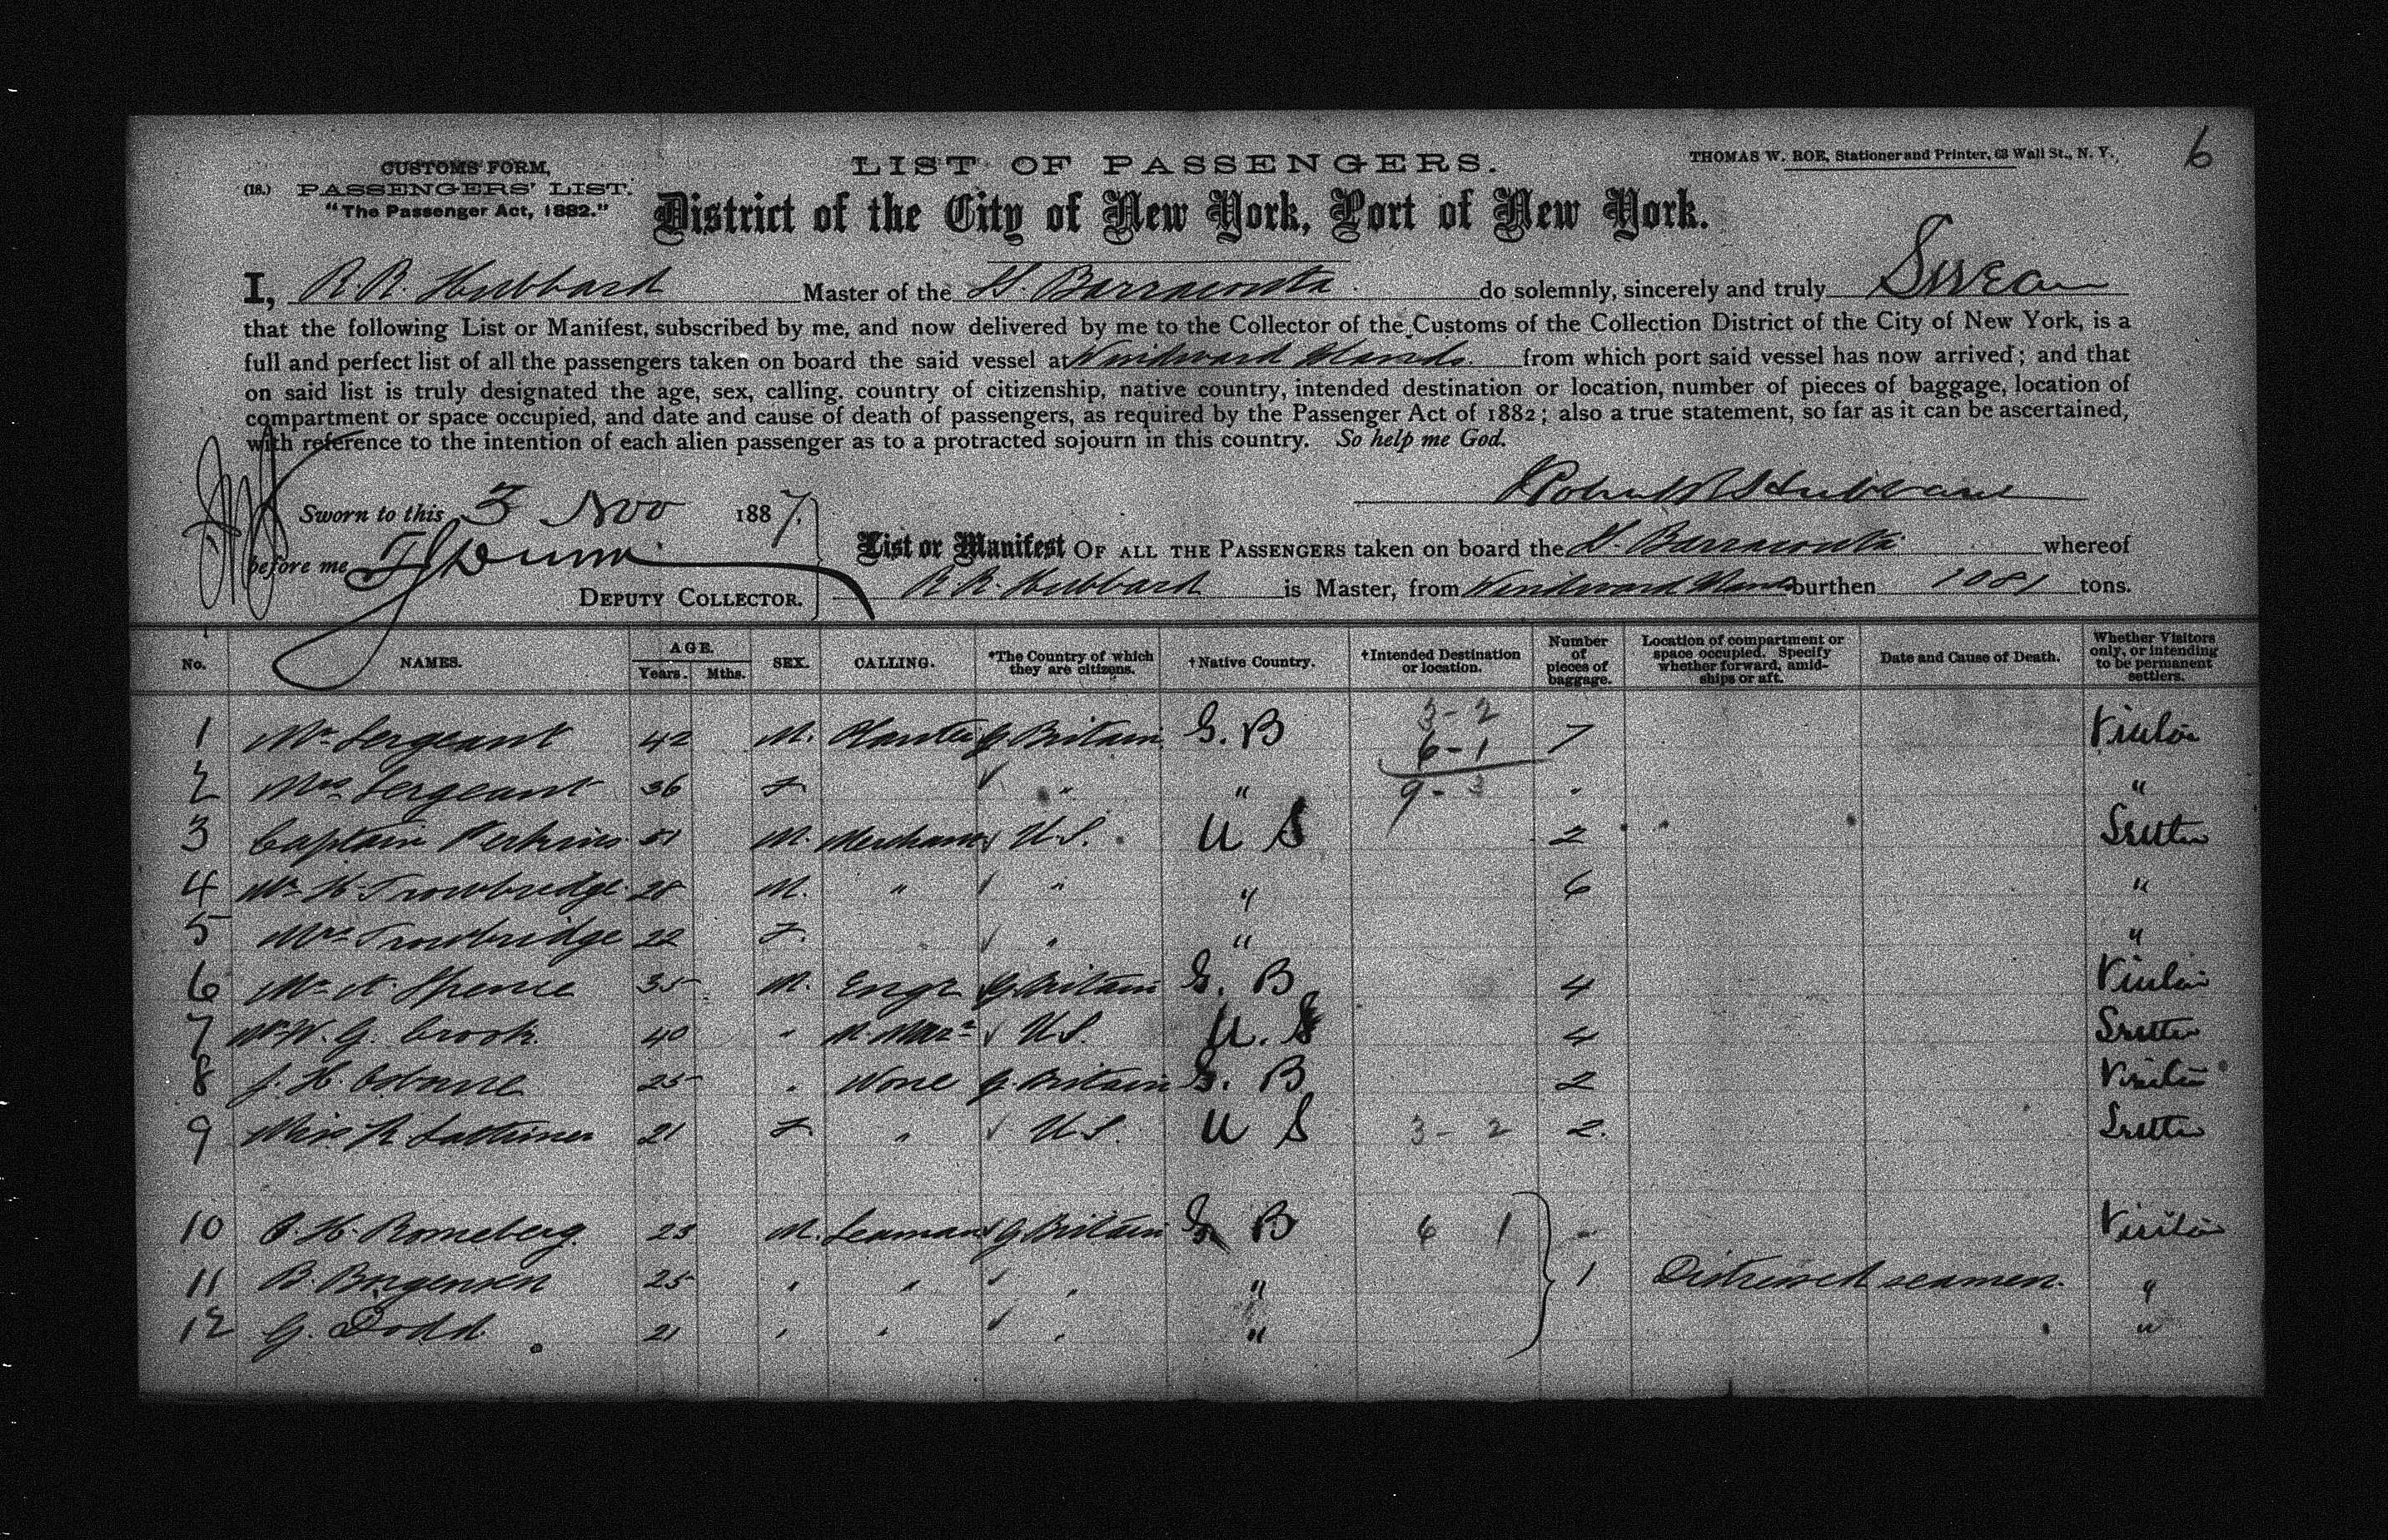 6
CUSTOMS FORM,
(18.) PASSENGERS' LIST.
"The Passenger Act, 1882."
LIST OF PASSENGERS.
THOMAS W. ROE, Stationer and Printer, 63 Wall St., N. Y.
District of the City of New York, Port of New York.
I, R. R. Hubbard Master of the S. Barracouta do solemnly, sincerely and truly Swear
that the following List or Manifest, subscribed by me, and now delivered by me to the Collector of the Customs of the Collection District of the City of New York, is a
full and perfect list of all the passengers taken on board the said vessel at Windward Islands from which port said vessel has now arrived; and that
on said list is truly designated the age, sex, calling, country of citizenship, native country, intended destination or location, number of pieces of baggage, location of
compartment or space occupied, and date and cause of death of passengers, as required by the Passenger Act of 1882; also a true statement, so far as it can be ascertained,
with reference to the intention of each alien passenger as to a protracted sojourn in this country. So help me God.
Robert R Hubbard
Sworn to this 3 Nov 1887.
before me
DEPUTY COLLECTOR.
List or Manifest OF ALL THE PASSENGERS taken on board the S. Barracouta whereof
R. R. Hubbard is Master, from Windward Islands burthen 1081 tons.
No. NAMES. AGE. Years. Mths. SEX. CALLING. *The Country of which they are citizens. †Native Country. †Intended Destination or location. Number of pieces of baggage. Location of compartment or space occupied. Specify whether forward, amidships or aft. Date and Cause of Death. Whether Visitors only, or intending to be permanent settlers.
1 Mr Sergeant 42 M. Planter G Britain G. B 3-2 6-1 7 Visitor
2 Mrs Sergeant 36 F. " " 9-3 " "
3 Captain Perkins 51 M. Merchant U.S. U S 2 Settler
4 Mr H. Trowbridge 28 M. " " " 6 "
5 Mrs Trowbridge 22 F. " " "
6 Mr A. Spence 35 M. Engr G. Britain G. B 4 Visitor
7 Mr W. G. Crook. 40 " U.S. U. S 4 Settler
8 J. H. Osborne 25 " None G. Britain G. B 2 Visitor
9 Miss R Lattimer 21 F. " U.S. U S 3-2 2. Settler
10 Romeberg 25 M. Seaman G Britain G B 6 1 - Visitor
11 B. Borgensen 25 " " " " 1 Distressed seamen. "
12 G. Dodd 21 " " " " "